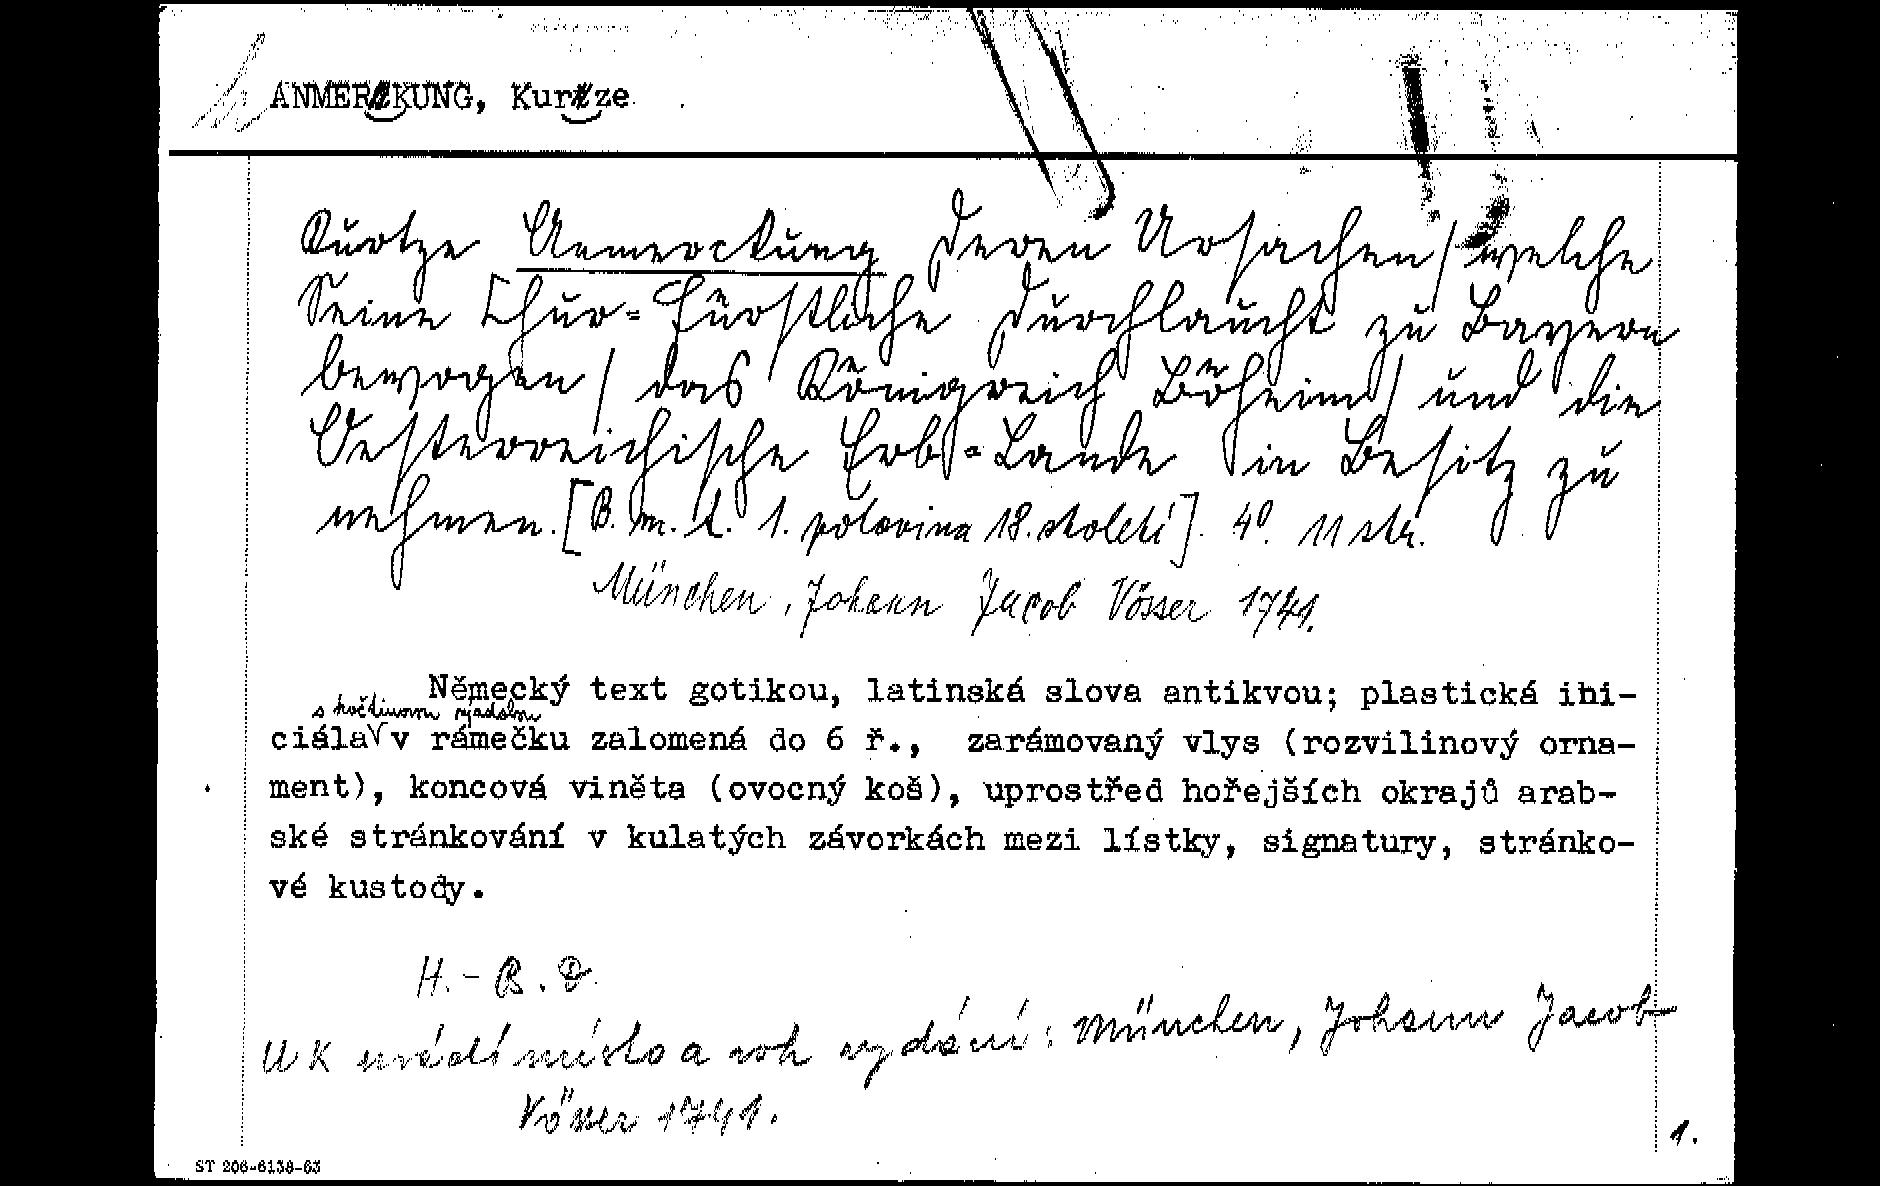 ANMERCKUNG, Kurtze
Kurtze Anmerckung deren Ursachen / welche
Seine Chur=Fürstliche Durchlaucht zu Bayern
bewogen / das Königreich Böheim / und die
Oesterreichische Erb=Lande in Besitz zu
nehmen. [B. m. t. 1. polovina 18. století]. 4º. 11 str.
München, Johann Jacob Vösser 1741.
Německý text gotikou, latinská slova antikvou; plastická ini-
s květinovou výzdobou
ciála v rámečku zalomená do 6 ř., zarámovaný vlys (rozvilinový orna-
ment), koncová viněta (ovocný koš), uprostřed hořejších okrajů arab-
ské stránkování v kulatých závorkách mezi lístky, signatury, stránko-
vé kustody.
H. - B. D.
UK uvádí místo a rok vydání: München, Johann Jacob
Vösser 1741.
1.
ST 206-6138-63